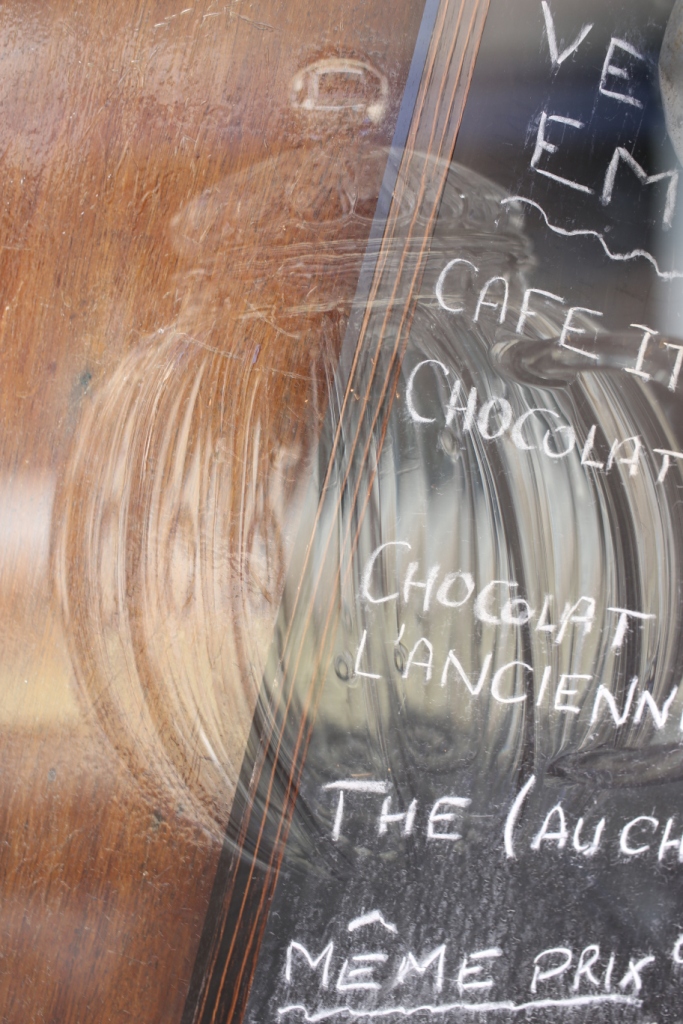 VE
EM
CAFE IT
CHOCOLAT
CHOCOLAT
L'ANCIENN
THE (AUCH
MÊME PRIX